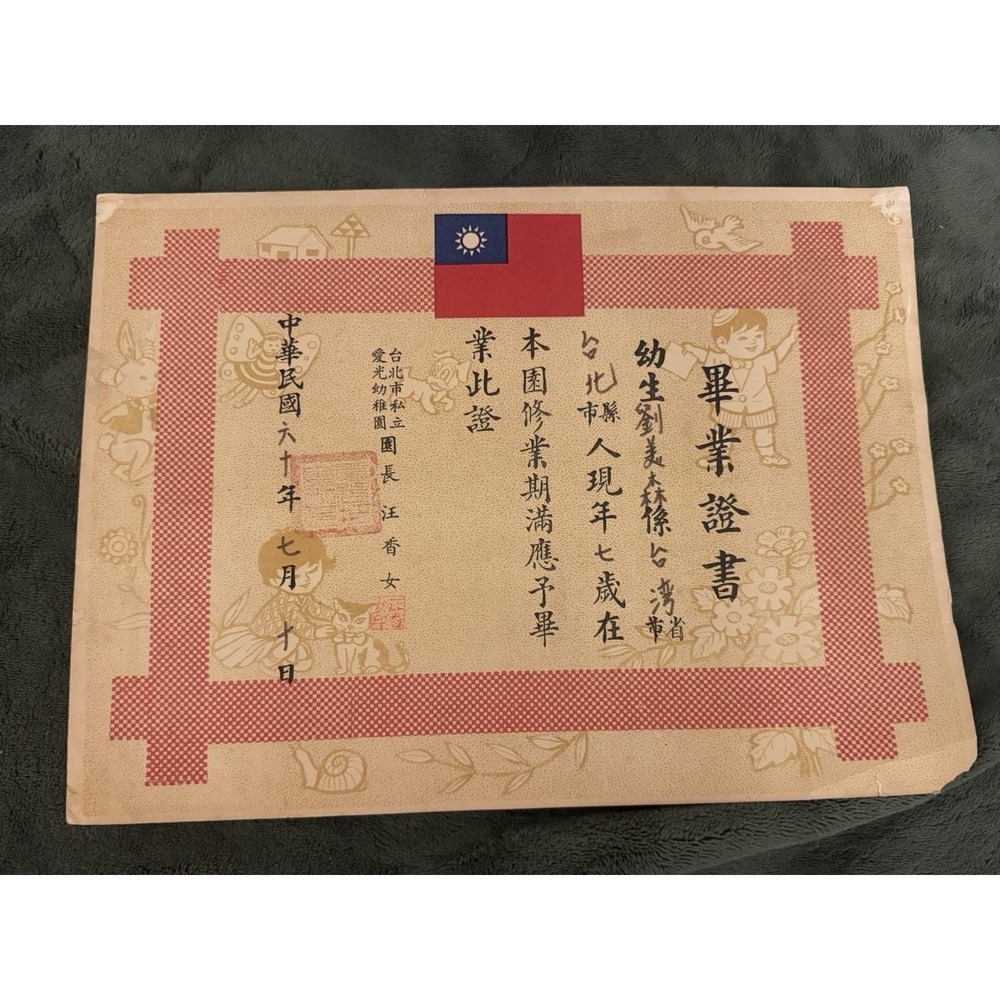 畢業證書
幼生劉美森係台灣省市
台北縣市人現年七歲在
本園修業期滿應予畢
業此證
台北市私立
愛光幼稚園
園長 汪香女
中華民國六十年七月十日